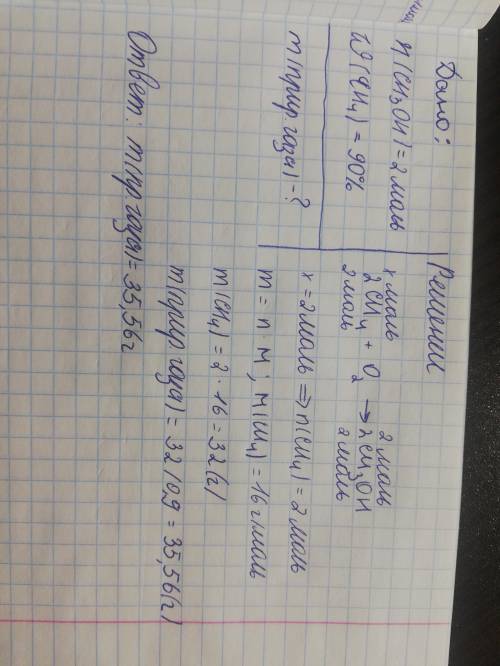 Дано:
n(CH3OH) = 2 моль
ω(CH4) = 90%
m(прир газа) - ?
Решении
x моль 2 моль
2CH4 + O2 → 2CH3OH
2 моль 2 моль
x = 2 моль => n(CH4) = 2 моль
m = n M; M(CH4) = 16 г/моль
m(CH4) = 2 · 16 = 32(г)
m(прир газа) = 32/0,9 = 35,56(г)
Ответ: m(пр газа) = 35,56 г